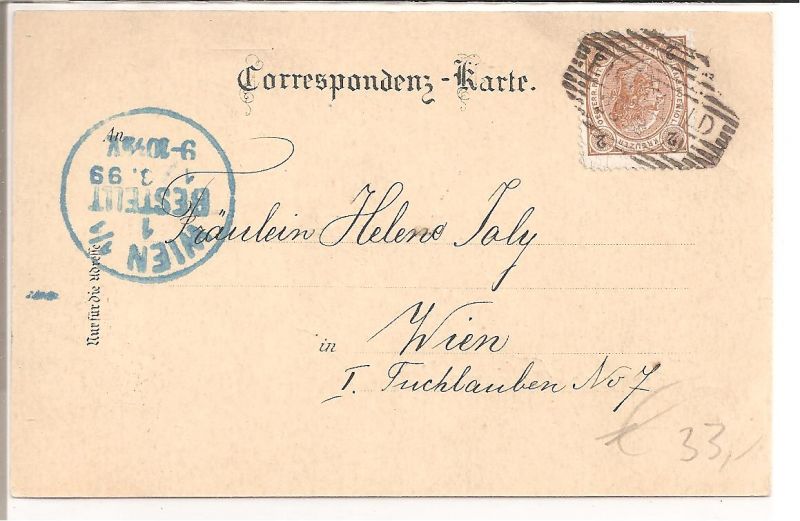 Correspondenz-Karte.
An
Fräulein Helene Joly
in Wien
I. Tuchlauben No 7
Nur für die Adresse
WIEN 1/1
1
BESTELLT
1 3. 99
9-10½V
2 KREUZER 2
€ 33,-